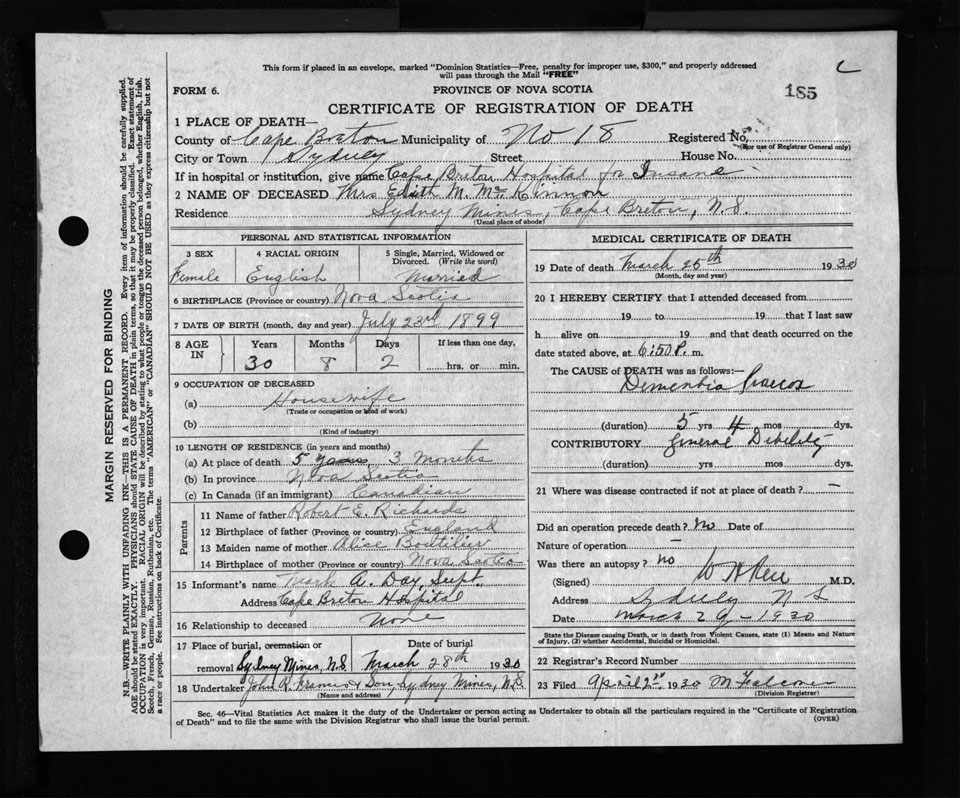 This form if placed in an envelope, marked "Dominion Statistics—Free, penalty for improper use, $300," and properly addressed
will pass through the Mail "FREE"
FORM 6.
PROVINCE OF NOVA SCOTIA
185
CERTIFICATE OF REGISTRATION OF DEATH
1 PLACE OF DEATH—
County of Cape Breton Municipality of No 18 Registered No.
(For use of Registrar General only)
City or Town Sydney Street House No.
If in hospital or institution, give name Cape Breton Hospital for Insane
2 NAME OF DECEASED Mrs Edith M. McKinnon
Residence Sydney Mines, Cape Breton, N.S.
(Usual place of abode)
PERSONAL AND STATISTICAL INFORMATION
3 SEX
Female
4 RACIAL ORIGIN
English
5 Single, Married, Widowed or Divorced. (Write the word)
Married
6 BIRTHPLACE (Province or country) Nova Scotia
7 DATE OF BIRTH (month, day and year) July 23rd 1899
8 AGE IN
Years Months Days If less than one day,
30 8 2 hrs. or min.
9 OCCUPATION OF DECEASED
(a) Housewife
(Trade or occupation or kind of work)
(b)
(Kind of industry)
10 LENGTH OF RESIDENCE (in years and months)
(a) At place of death 5 years, 3 Months
(b) In province Nova Scotia
(c) In Canada (if an immigrant) Canadian
Parents
11 Name of father Robert E. Richards
12 Birthplace of father (Province or country) England
13 Maiden name of mother Alice Boutilier
14 Birthplace of mother (Province or country) Nova Scotia
15 Informant's name Mark A. Day, Supt.
Address Cape Breton Hospital
16 Relationship to deceased None
17 Place of burial, cremation or Date of burial
removal Sydney Mines, N.S March 28th 1930
18 Undertaker John R. & Son, Sydney Mines, N.S
(Name and address)
MEDICAL CERTIFICATE OF DEATH
19 Date of death March 25th 1930
(Month, day and year)
20 I HEREBY CERTIFY that I attended deceased from
19 to 19 that I last saw
h alive on 19 and that death occurred on
date stated above, at 6:50 P. m.
The CAUSE of DEATH was as follows:—
Dementia Praecox
(duration) 5 yrs 4 mos dys.
CONTRIBUTORY General Debility
(duration) yrs. mos. dys.
21 Where was disease contracted if not at place of death? —
Did an operation precede death? No Date of
Nature of operation —
Was there an autopsy? no
(Signed) M.D.
Address Sydney N S
Date March 29 - 1930
State the Disease causing Death, or in death from Violent Causes, state (1) Means and Nature
of Injury, (2) whether Accidental, Suicidal or Homicidal.
22 Registrar's Record Number
23 Filed April 1930
(Division Registrar)
Sec. 46—Vital Statistics Act makes it the duty of the Undertaker or person acting as Undertaker to obtain all the particulars required in the "Certificate of Registration
of Death" and to file the same with the Division Registrar who shall issue the burial permit.
(OVER)
MARGIN RESERVED FOR BINDING
N.B.—WRITE PLAINLY WITH UNFADING INK—THIS IS A PERMANENT RECORD. Every item of information should be carefully supplied.
AGE should be stated EXACTLY. PHYSICIANS should STATE CAUSE OF DEATH in plain terms, so that it may be properly classified. Exact statement of
OCCUPATION is very important. RACIAL ORIGIN will be described by stating to what people or tongue the deceased person belonged, whether English, Irish,
Scotch, French, German, Russian, Ruthenian, etc. The terms "AMERICAN" or "CANADIAN" SHOULD NOT BE USED as they express citizenship but not
a race or people. See instructions on back of Certificate.